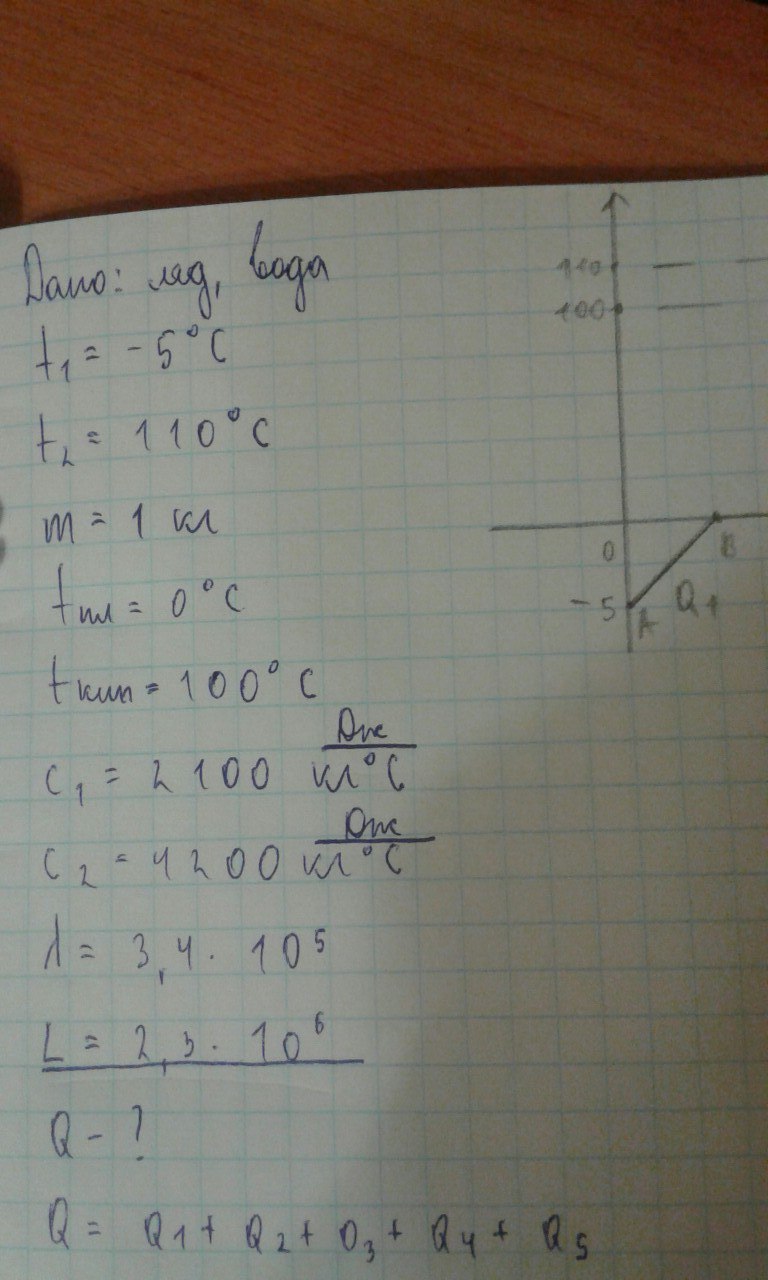 Дано: лёд, вода
t₁ = -5°C
t₂ = 110°C
m = 1 кг
tпл = 0°C
tкип = 100°C
c₁ = 2100 Дж/кг°C
c₂ = 4200 Дж/кг°C
λ = 3,4 · 10⁵
L = 2,3 · 10⁶
Q - ?
Q = Q₁ + Q₂ + Q₃ + Q₄ + Q₅
110
100
0
B
-5
A
Q₁